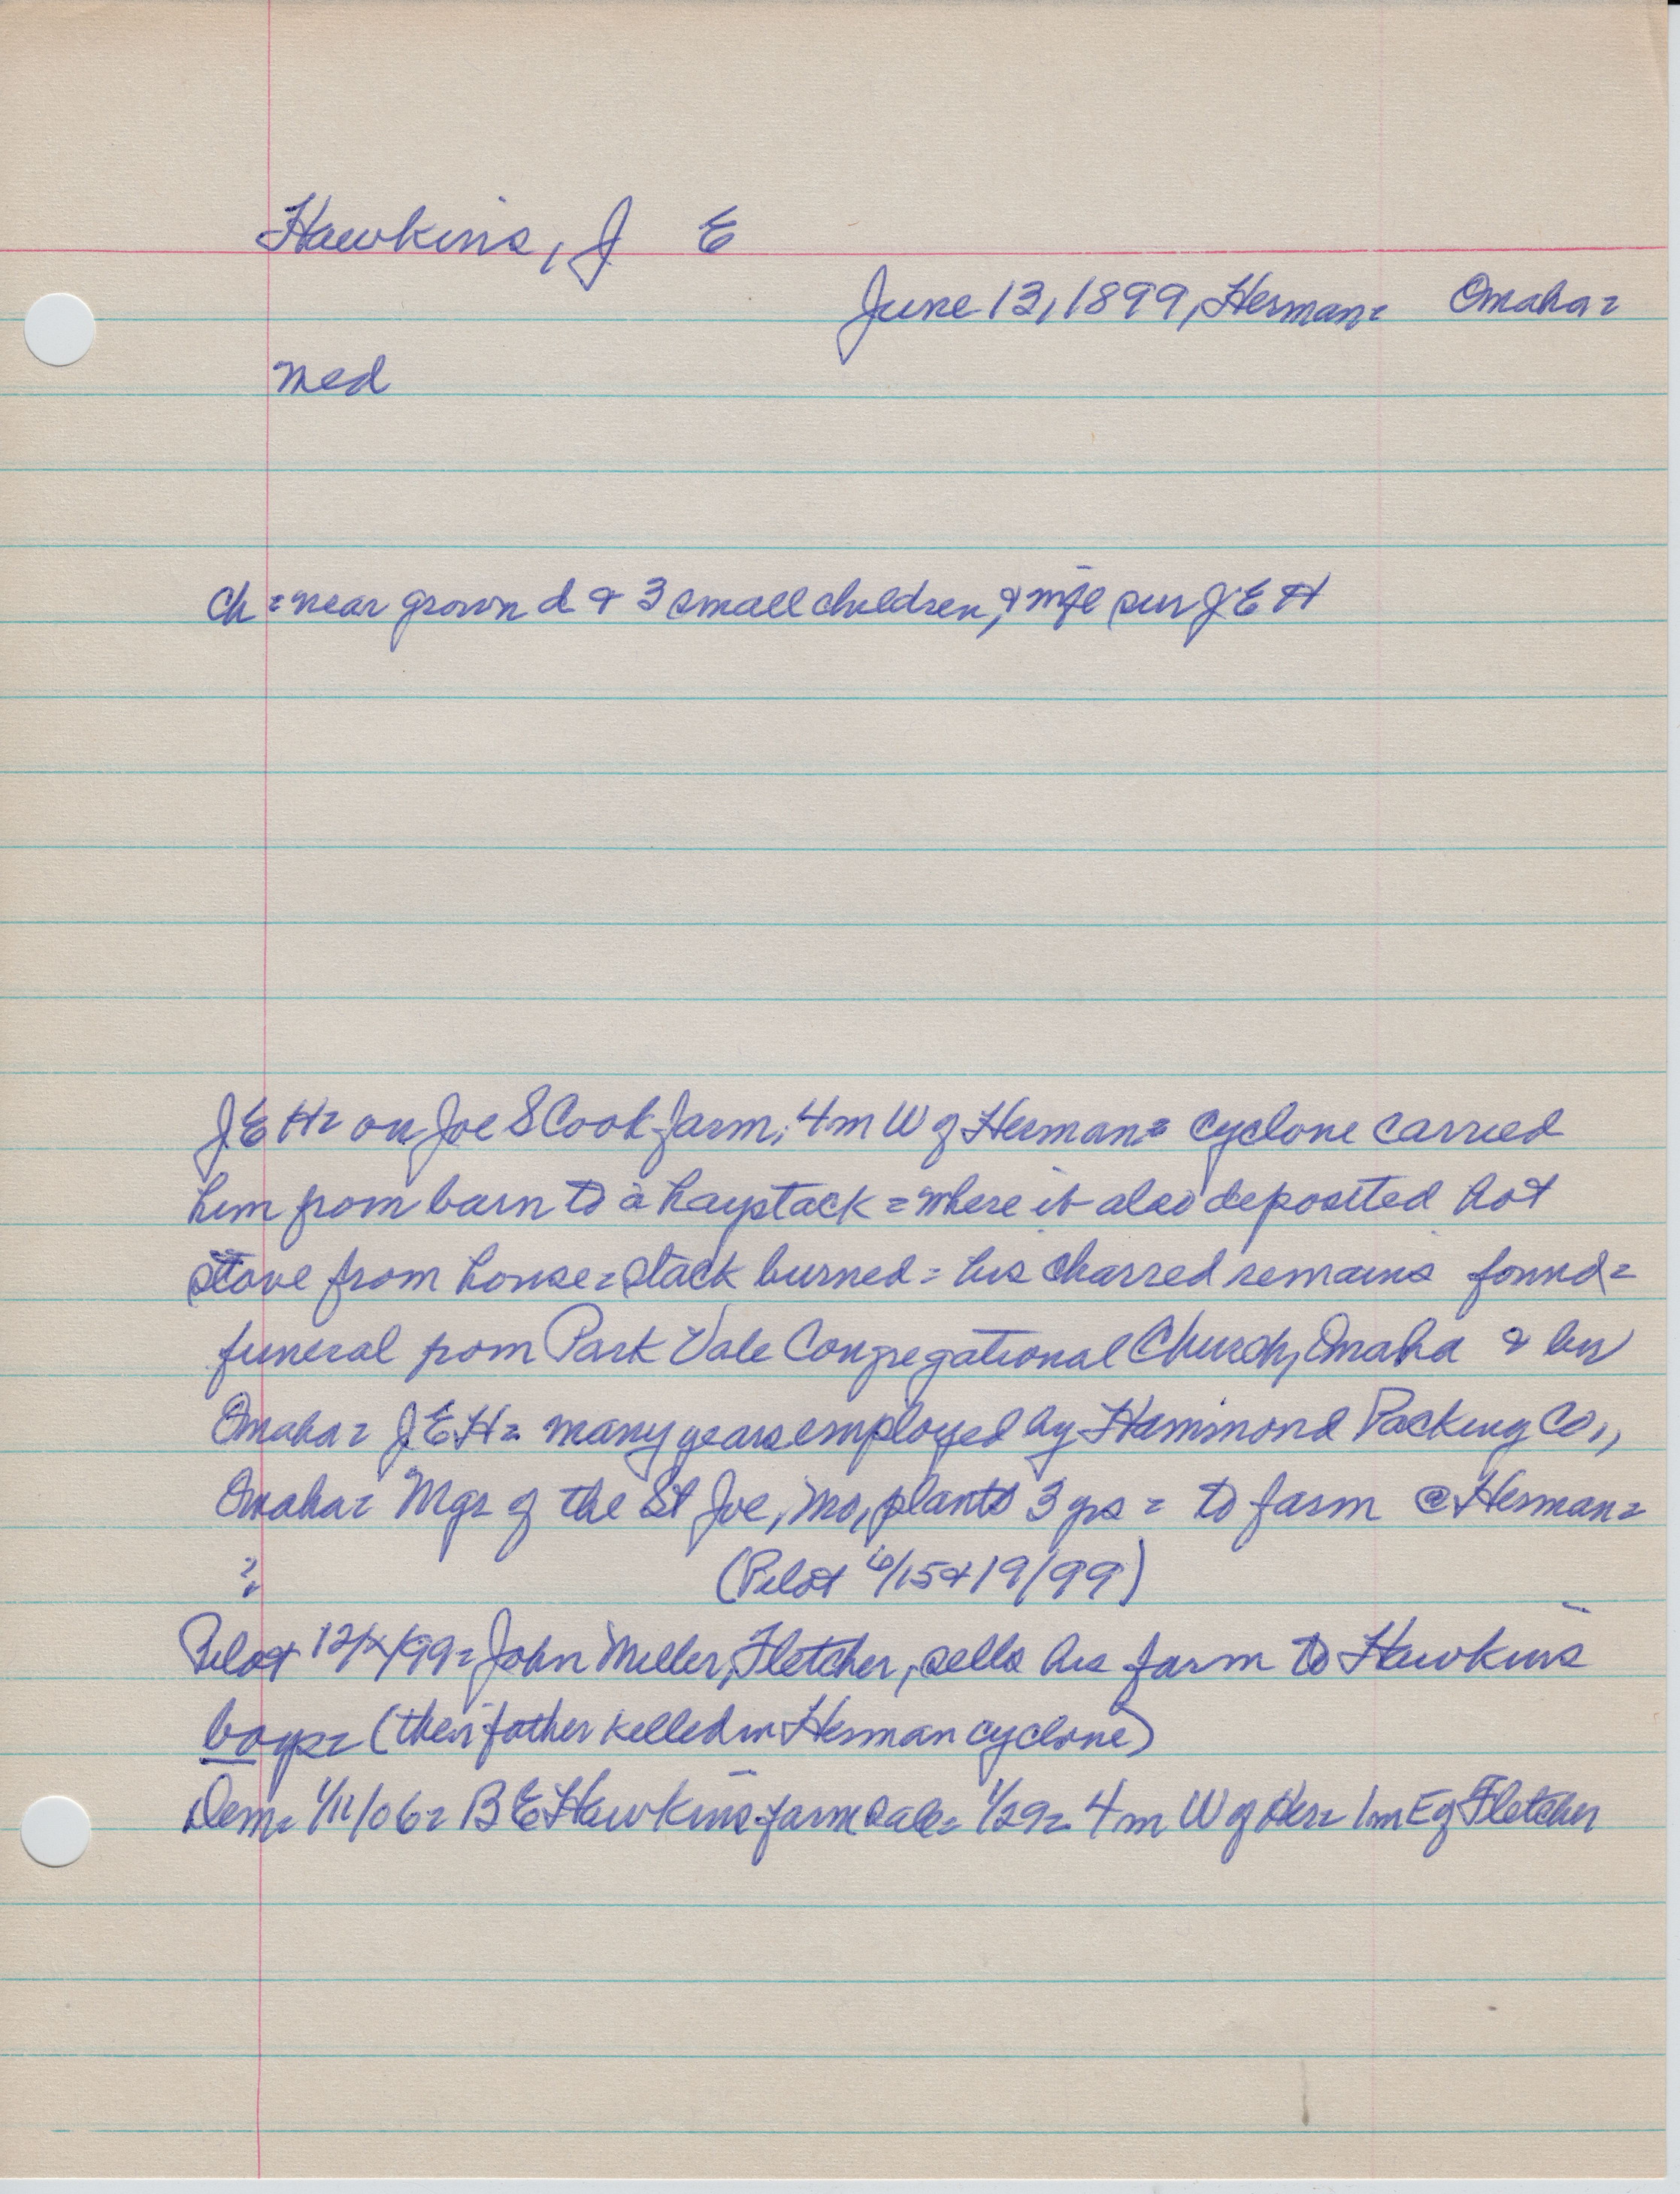 Hawkins, J E
June 13, 1899, Herman= Omaha=
med
Ch = near grown d & 3 small children, & wife sur J E H
J E H= on Joe S Cook farm, 4 m W of Herman= cyclone carried
him from barn to a haystack = where it also deposited hot
stove from house = stack burned = his charred remains found=
funeral from Park Vale Congregational Church, Omaha & bur
Omaha= J E H= many years employed by Hammond Packing Co.,
Omaha= Mgr of the St Joe, Mo, plants 3 yrs = to farm @ Herman=
? (Pilot 6/15 & 19/99)
Pilot 12/ /99= John Miller, Fletcher, sells his farm to Hawkins
boys= (their father killed in Herman cyclone)
Dem= 1/11/06= B E Hawkins farm sale= 1/29= 4 m W of Her= 1 m E of Fletcher